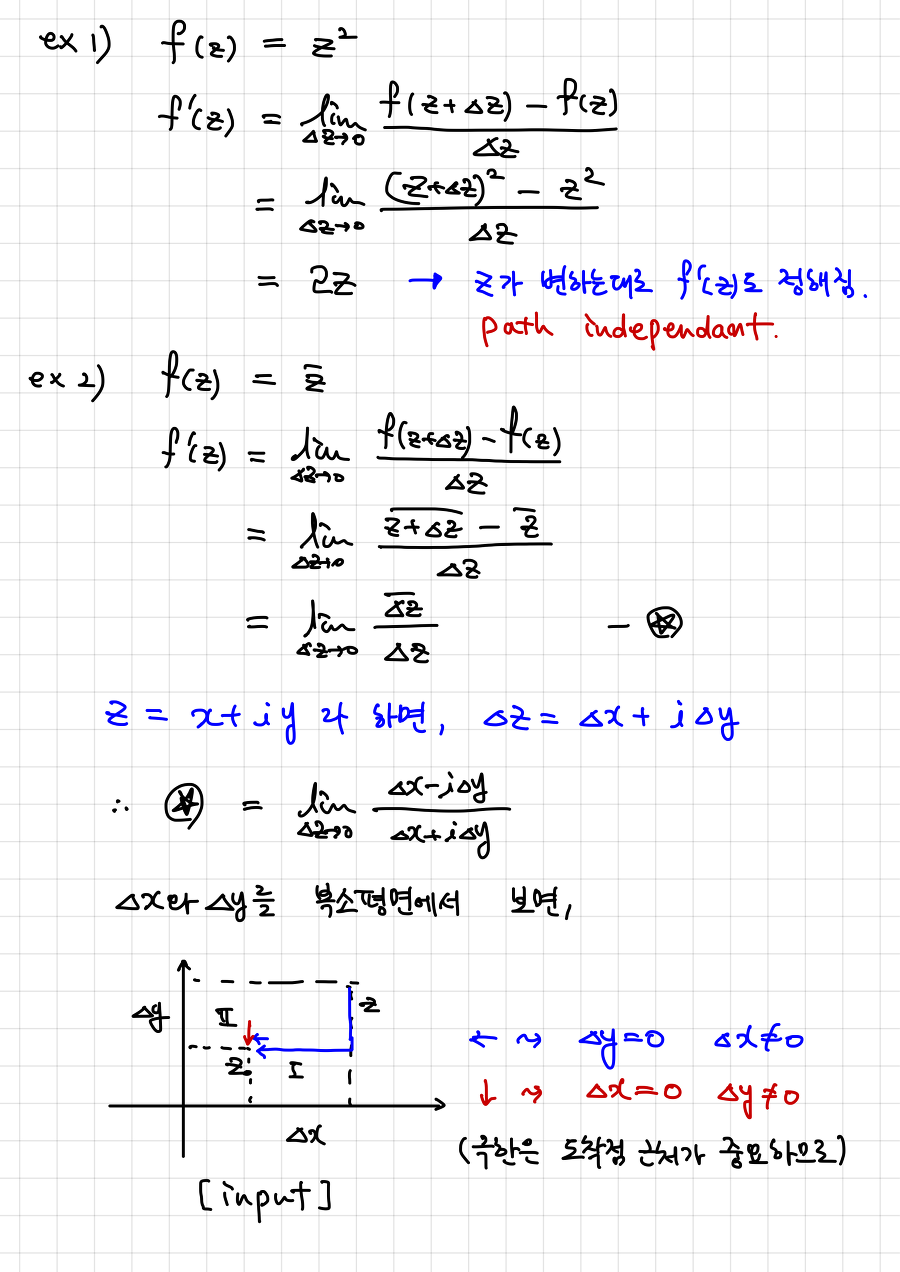 ex 1) f(z) = z²
f'(z) = lim_{Δz→0} \frac{f(z+Δz) - f(z)}{Δz}
= lim_{Δz→0} \frac{(z+Δz)² - z²}{Δz}
= 2z → z가 변하는대로 f'(z)도 정해짐.
path independant.
ex 2) f(z) = \overline{z}
f'(z) = lim_{Δz→0} \frac{f(z+Δz) - f(z)}{Δz}
= lim_{Δz→0} \frac{\overline{z+Δz} - \overline{z}}{Δz}
= lim_{Δz→0} \frac{\overline{Δz}}{Δz} - ⍟
z = x + iy 라 하면, Δz = Δx + iΔy
∴ ⍟ = lim_{Δz→0} \frac{Δx - iΔy}{Δx + iΔy}
Δx와 Δy를 복소평면에서 보면,
Δy II z
z₀ I
Δx
[input]
← ⇝ Δy=0 Δx≠0
↓ ⇝ Δx=0 Δy≠0
(극한은 도착점 근처가 중요하므로)